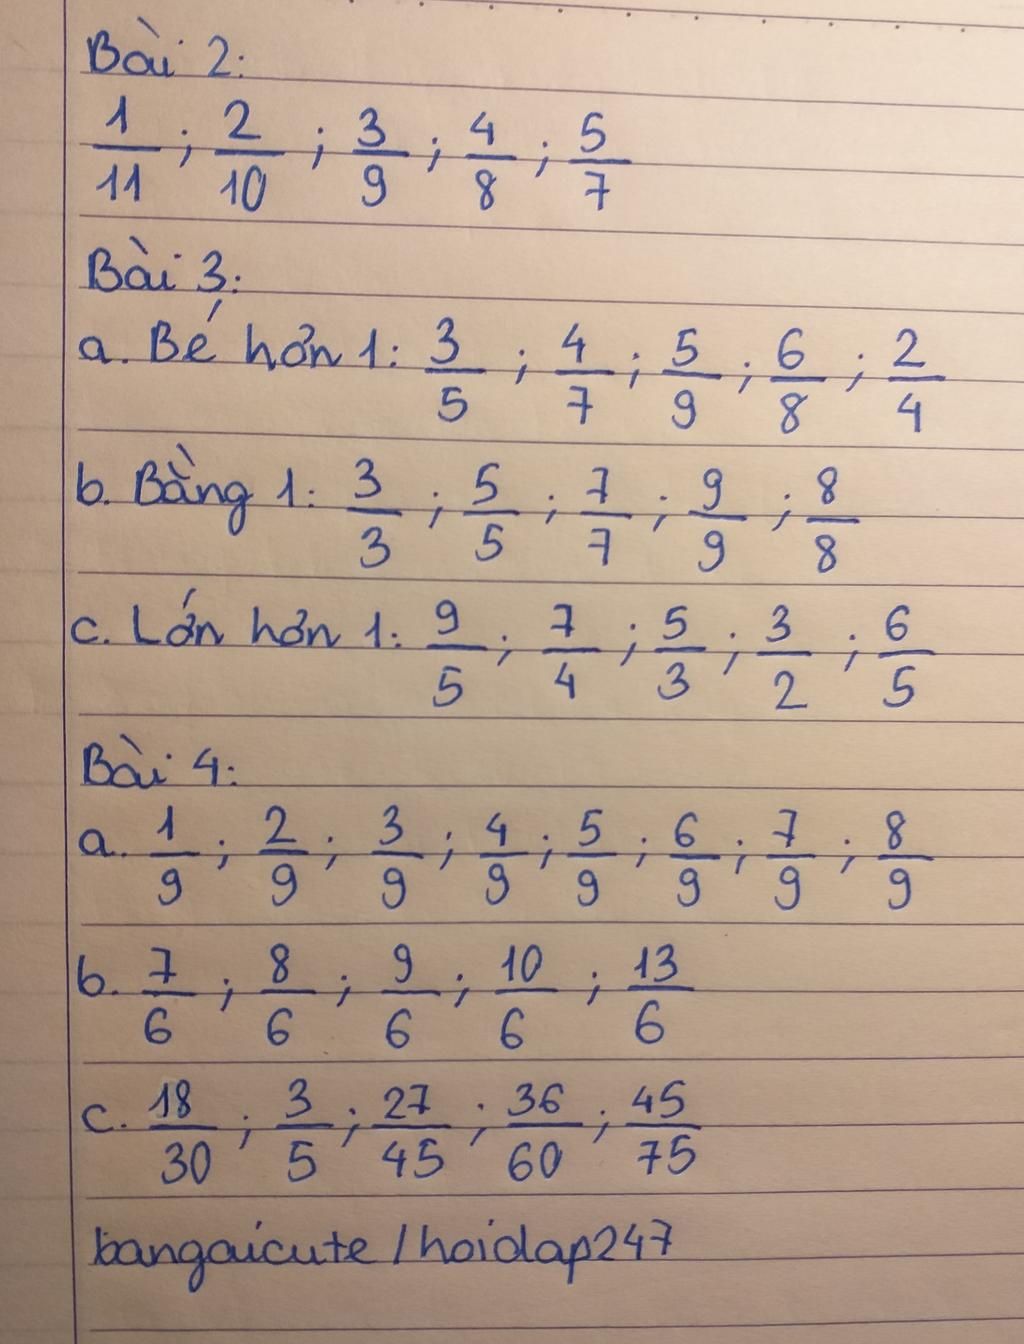 Bài 2:
1/11 ; 2/10 ; 3/9 ; 4/8 ; 5/7
Bài 3:
a. Bé hơn 1: 3/5 ; 4/7 ; 5/9 ; 6/8 ; 2/4
b. Bằng 1: 3/3 ; 5/5 ; 7/7 ; 9/9 ; 8/8
c. Lớn hơn 1: 9/5 ; 7/4 ; 5/3 ; 3/2 ; 6/5
Bài 4:
a. 1/9 ; 2/9 ; 3/9 ; 4/9 ; 5/9 ; 6/9 ; 7/9 ; 8/9
b. 7/6 ; 8/6 ; 9/6 ; 10/6 ; 13/6
c. 18/30 ; 3/5 ; 27/45 ; 36/60 ; 45/75
bangaicute / hoidap247